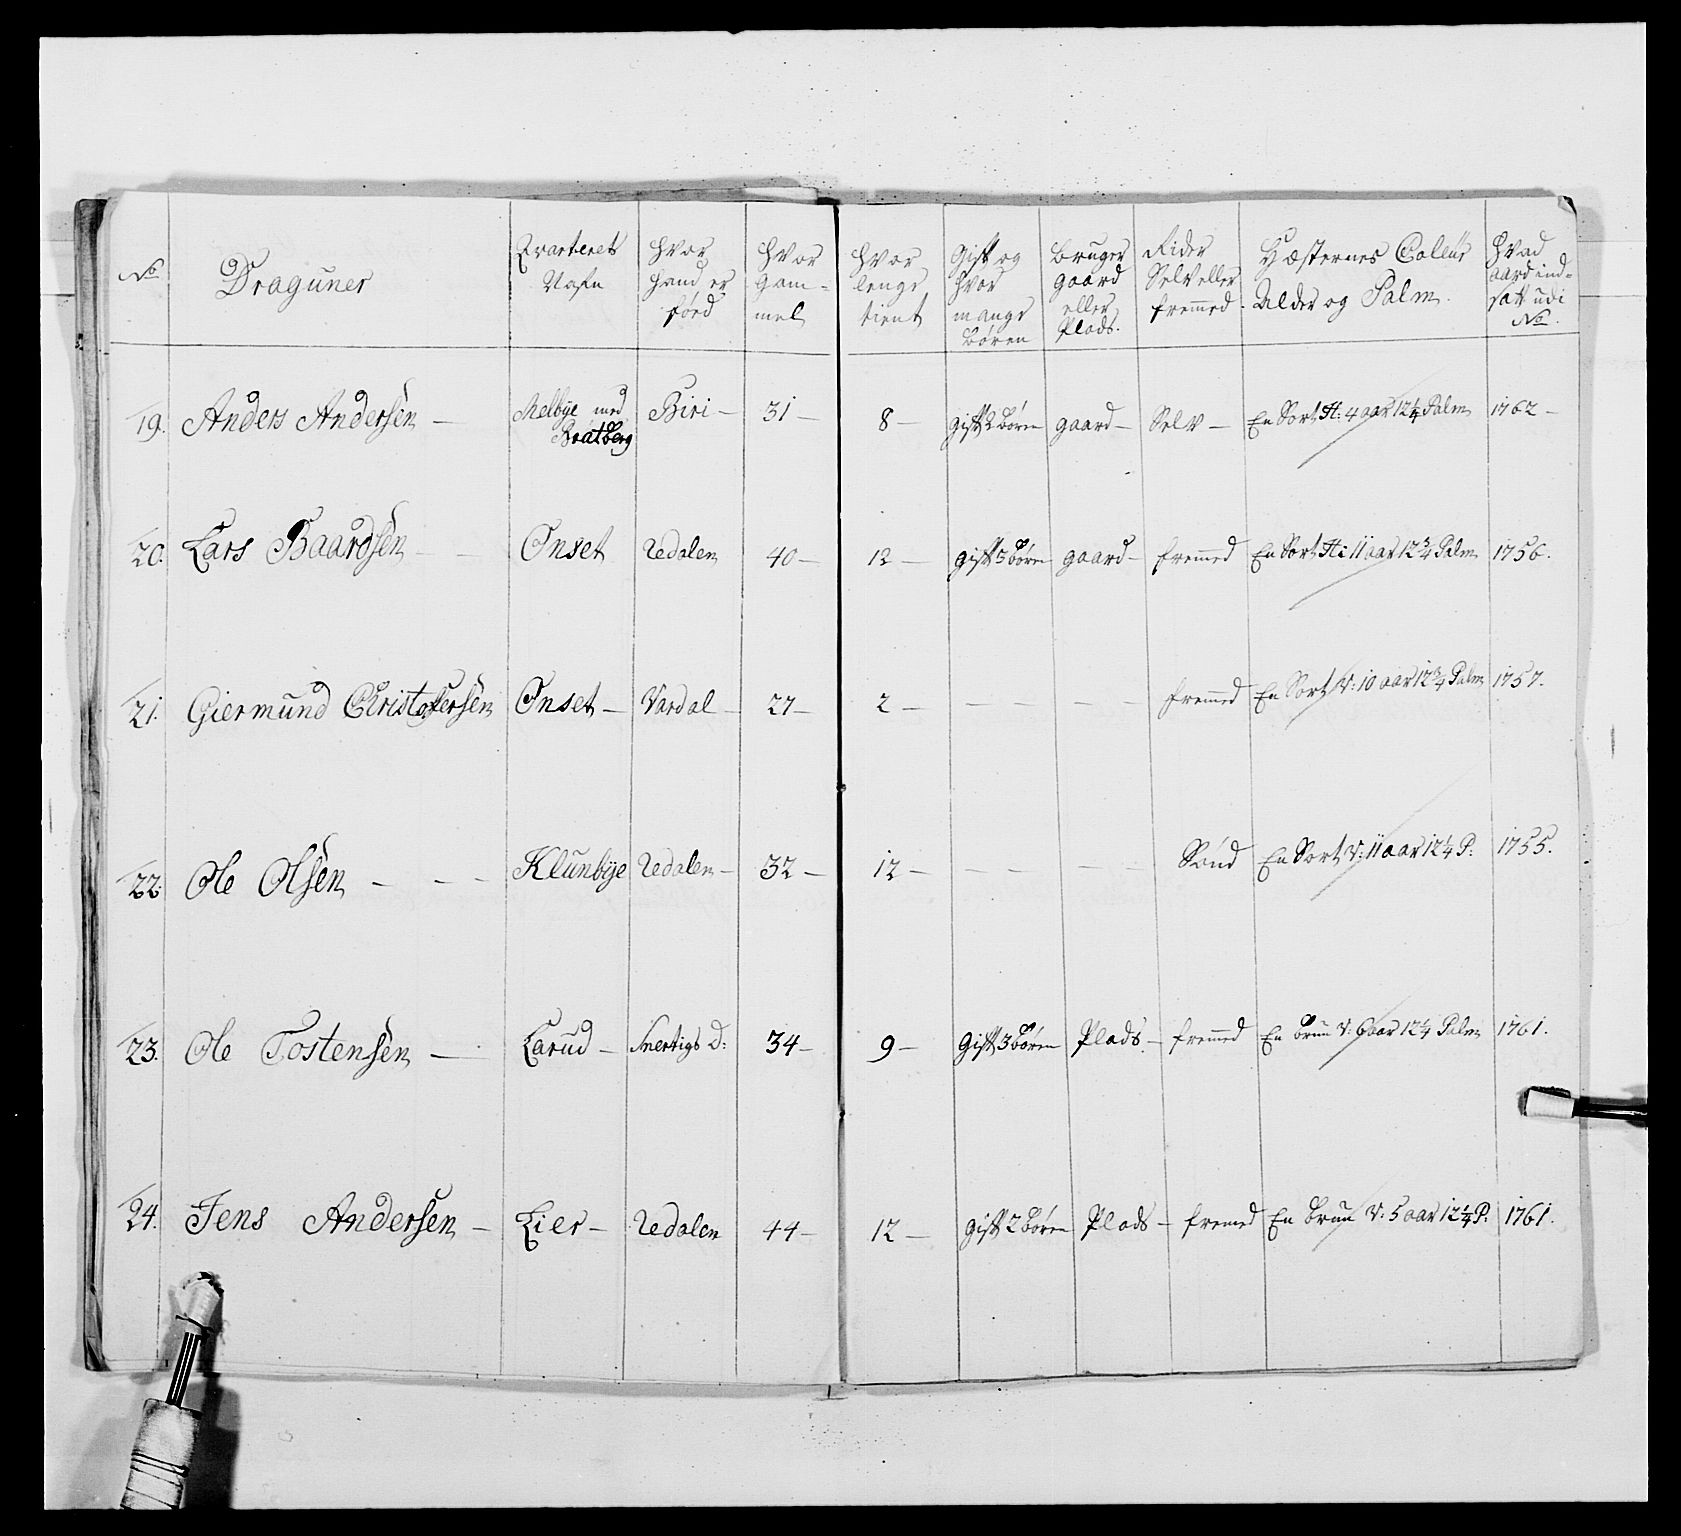 No | Draguner | Qvarterets Nafn | hvor hand er föed | hvor gammel | hvor lenge tient | Gift og hvor mange Bören | Bruger gaard eller Plads. | Rider Selv eller fremmed | Hæsternes Coleur Alder og Palm. | Hvad aar d ind-satt udi No
19. | Anders Andersen — | Melbye med Bratberg | Biri — | 31 — | 8 — | gift 2 Börn | gaard — | Selv — | En Sort H: 4 aar 12 1/4 Palm | 1762 —
20. | Lars Baardsen — | Onset | Redalen | 40 — | 12 — | gift 5 Börn | gaard — | fremmed | En Sort H: 11 aar 12 3/4 Palm | 1756.
21. | Giermund Christofersen | Onset — | Vardal — | 27 — | 2 — | — — | — — | fremmed | En Sort V: 10 aar 12 3/4 Palm | 1757.
22. | Ole Olsen — — — | Klunbye | Redalen — | 32 — | 12 — | — — | — — | Sönd | En Sort V: 11 aar 12 1/4 P: | 1755.
23. | Ole Tostensen — | Larud — | Snertigs D: | 34 — | 9 — | Gift 3 Börn | Plads. — | fremmed | En brun V: 6 aar 12 1/4 Palm | 1761.
24. | Jens Andersen — | Lier — | Redalen | 44 — | 12 — | gift 2 Börn | Plads — | fremed | En brun V: 5 aar 12 1/4 P: | 1761.